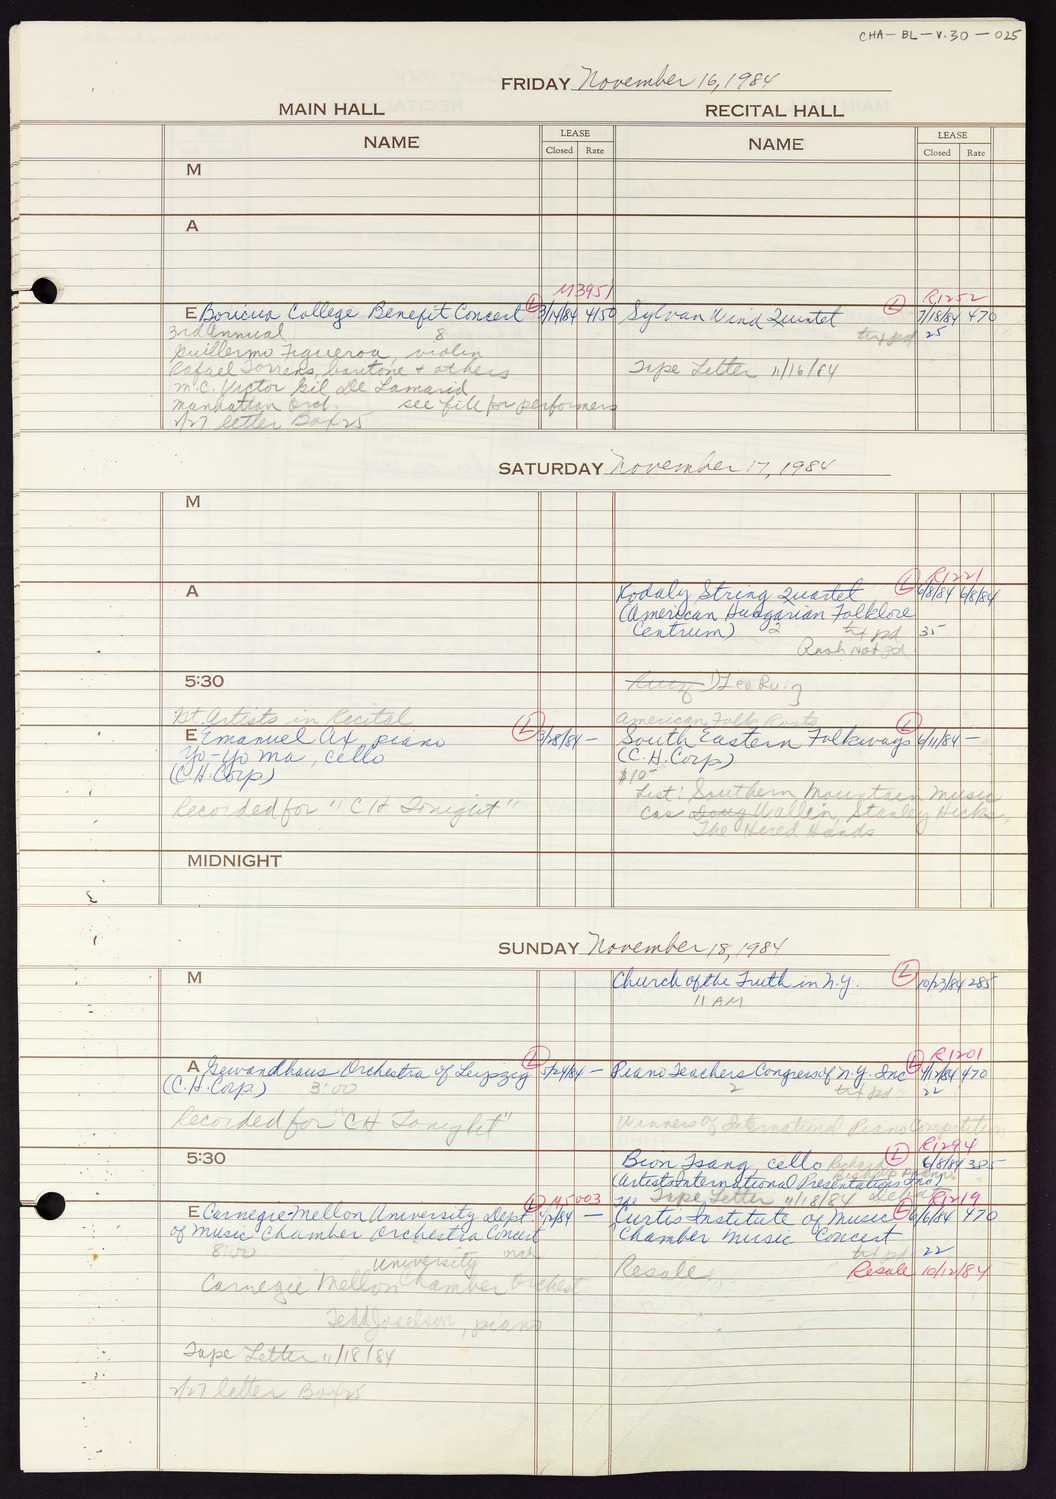 CHA-BL-V.30-025
FRIDAY November 16, 1984
MAIN HALL
RECITAL HALL
NAME LEASE Closed Rate
NAME LEASE Closed Rate
M
A
M3951
E Boricua College Benefit Concert L 3/14/84 4150
3rd Annual 8
Guillermo Figueroa, violin
Rafael Torrens, baritone + others
M.C. Victor Gil De Lamarid
Manhattan Orch. see file for performers
2/27 letter Box 25
R1252
Sylvan Wind Quintet L 7/18/84 470
txt pd 25
Tape Letter 11/16/84
SATURDAY November 17, 1984
M
A
R1221
Kodaly String Quartet L 6/8/84 6/8/84
(American Hungarian Folklore
Centrum) 2 txt pd 35
Rash Not pd
5:30
D'Leo Ruiz
Int. Artists in Recital
E Emanuel Ax, piano L 3/28/84 —
Yo-Yo Ma, cello
(C.H. Corp)
Recorded for "CH Tonight"
American Folk Roots
South Eastern Folkways L 6/11/84 —
(C.H. Corp)
$10-
List: Southern Mountain Music
Cas Doug Wallen, Stanley Hicks,
The Hired Hands
MIDNIGHT
SUNDAY November 18, 1984
M
Church of the Truth in N.Y. L 10/23/84 285
11 AM
A Gewandhaus Orchestra of Leipzig L 5/24/84 —
(C.H. Corp) 3:00
Recorded for "CH Tonight"
R1201
Piano Teachers Congress of N.Y. Inc L 4/12/84 470
2 txt pd 22
Winners of International Piano Competition
5:30
R1294
Bion Tsang, cello Richard Bishop, piano L 6/8/84 385
(Artists International Presentations Inc)
Tape Letter 11/18/84 Debut
M5003
E Carnegie-Mellon University Dept. L 4/2/84 —
of Music Chamber Orchestra Concert
8:00
University
Carnegie Mellon Chamber Orchest
Tedd Joselson, piano
Tape Letter 11/18/84
2/27 letter Box 25
R1219
The Curtis Institute of Music L 6/6/84 470
Chamber Music Concert
txt pd 22
Resale Resale 10/12/84